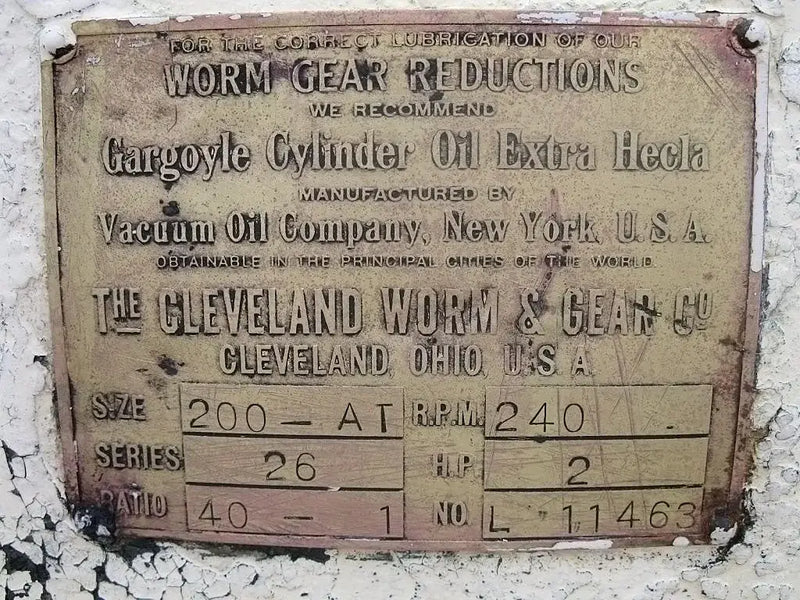 FOR THE CORRECT LUBRICATION OF OUR
WORM GEAR REDUCTIONS
WE RECOMMEND
Gargoyle Cylinder Oil Extra Hecla
MANUFACTURED BY
Vacuum Oil Company, New York, U.S.A.
OBTAINABLE IN THE PRINCIPAL CITIES OF THE WORLD.
THE CLEVELAND WORM & GEAR CO
CLEVELAND, OHIO, U.S.A.
SIZE 200-AT R.P.M. 240
SERIES 26 H.P. 2
RATIO 40 - 1 NO. L 11463